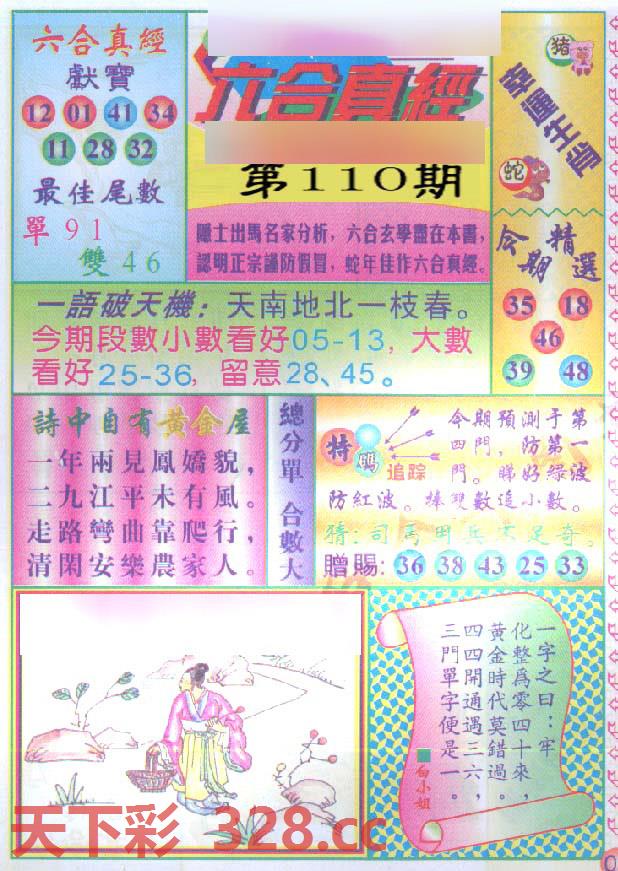 六合真經
獻寶
12 01 41 34
11 28 32
最佳尾數
單 91
雙 46
六合真經
第110期
隱士出馬名家分析，六合玄學盡在本書，
認明正宗謹防假冒，蛇年佳作六合真經。
豬
蛇
今期精選
35 18
46
39 48
一語破天機：天南地北一枝春。
今期段數小數看好05-13，大數
看好25-36，留意28、45。
詩中自有黃金屋
一年兩見鳳嬌貌，
二九江平未有風。
走路彎曲靠爬行，
清閑安樂農家人。
總分單 合數大
特碼
追踪
今期預測于第
四門，防第一
門。睇好绿波
防紅波。捧雙數追小數。
猜：司馬田兵不足奇。
贈賜：36 38 43 25 33
一字之曰：牢
化整爲零四十來，
黃金時代莫錯過。
四四開通遇三六，
三門單字便是一。
白小姐
天下彩 328.cc